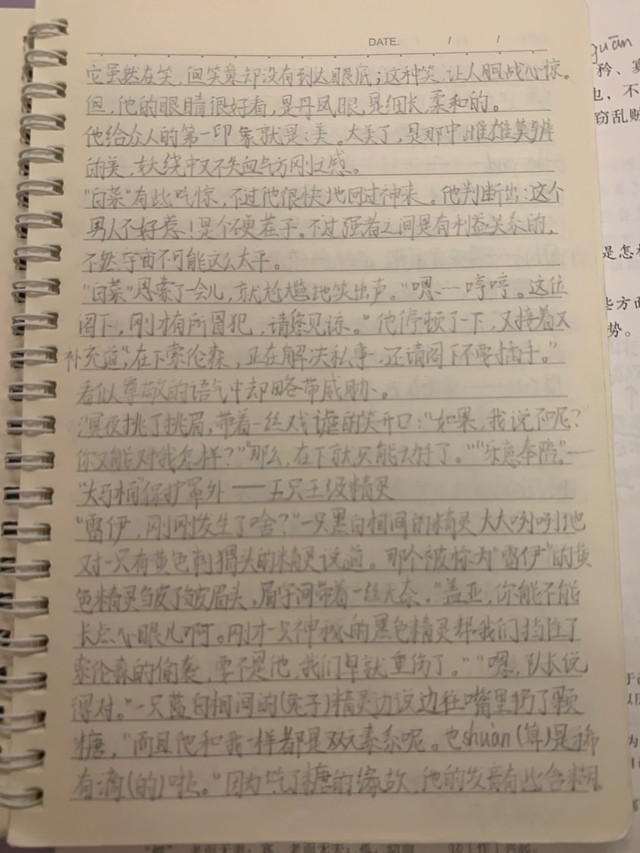 DATE.  /  /
它虽然在笑，但笑意却没有到达眼底；这种笑让人胆战心惊。
但，他的眼睛很好看，是丹凤眼，是细长、柔和的。
他给众人的第一印象就是：美。太美了，是那中雌雄莫辨
的美，妖绕中又不失血气方刚之感。
"白菜"有些吃惊，不过他很快地回过神来。他判断出：这个
男人不好惹！是个硬茬子。不过强者之间是有利益关系的，
不然宇宙不可能这么太平。
"白菜"思索了一会儿，就尴尬地笑出声。"嗯…哼哼。这位
阁下，刚才有所冒犯，请您见谅。"他停顿了一下，又接着又
补充道，"在下索伦森，正在解决私事，还请阁下不要插手。"
看似尊敬的语气中却略带威胁。
冥夜挑了挑眉，带着一丝戏谑的笑开口："如果，我说不呢？
你又能对我怎样？""那么，在下就只能去拼了。""乐意奉陪。"—
保护罩外——五只王级精灵
"雷伊，刚刚发生了啥？"一只黑白相间的精灵大大咧咧地
对一只有黄色刺猬头的精灵说道。那个被称为"雷伊"的黄
色精灵皱了皱眉头，眉宇间带着一丝无奈，"盖亚，你能不能
长点心眼儿啊。刚才一只神秘的黑色精灵帮我们挡住了
索伦森的偷袭，要不是他，我们早就重伤了。""嗯，队长说
得对。"一只蓝白相间的(兔子)精灵边说边往嘴里扔了颗
糖，"而且他和我一样都是双元素系呢。也shuàn(算)是稀
有滴(的)啦。"因为吃了糖的缘故，他的发音有些含糊
guān
矜、寡
也，不
窃乱贼
是怎
些方面
势。